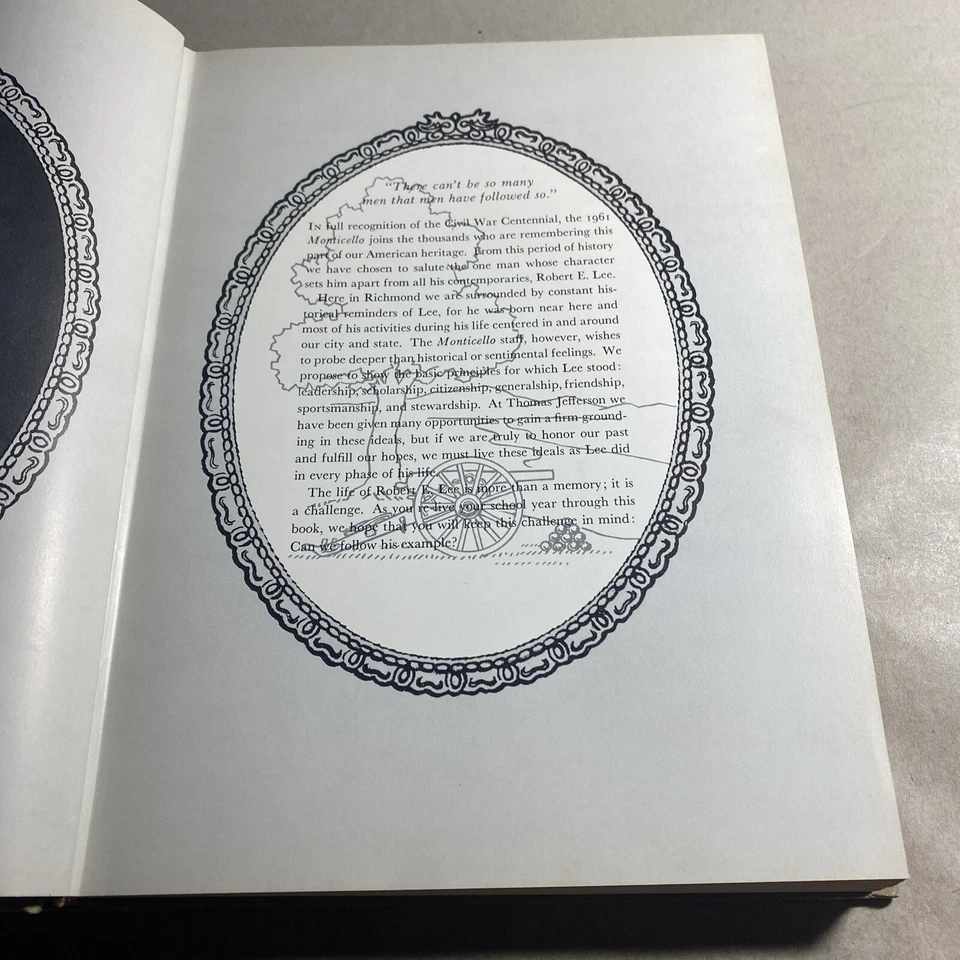 "There can't be so many
men that men have followed so."
In full recognition of the Civil War Centennial, the 1961
Monticello joins the thousands who are remembering this
part of our American heritage. From this period of history
we have chosen to salute the one man whose character
sets him apart from all his contemporaries, Robert E. Lee.
Here in Richmond we are surrounded by constant his-
torical reminders of Lee, for he was born near here and
most of his activities during his life centered in and around
our city and state. The Monticello staff, however, wishes
to probe deeper than historical or sentimental feelings. We
propose to show the basic principles for which Lee stood:
leadership, scholarship, citizenship, generalship, friendship,
sportsmanship, and stewardship. At Thomas Jefferson we
have been given many opportunities to gain a firm ground-
ing in these ideals, but if we are truly to honor our past
and fulfill our hopes, we must live these ideals as Lee did
in every phase of his life.
The life of Robert E. Lee is more than a memory; it is
a challenge. As you re-live your school year through this
book, we hope that you will keep this challenge in mind:
Can we follow his example?